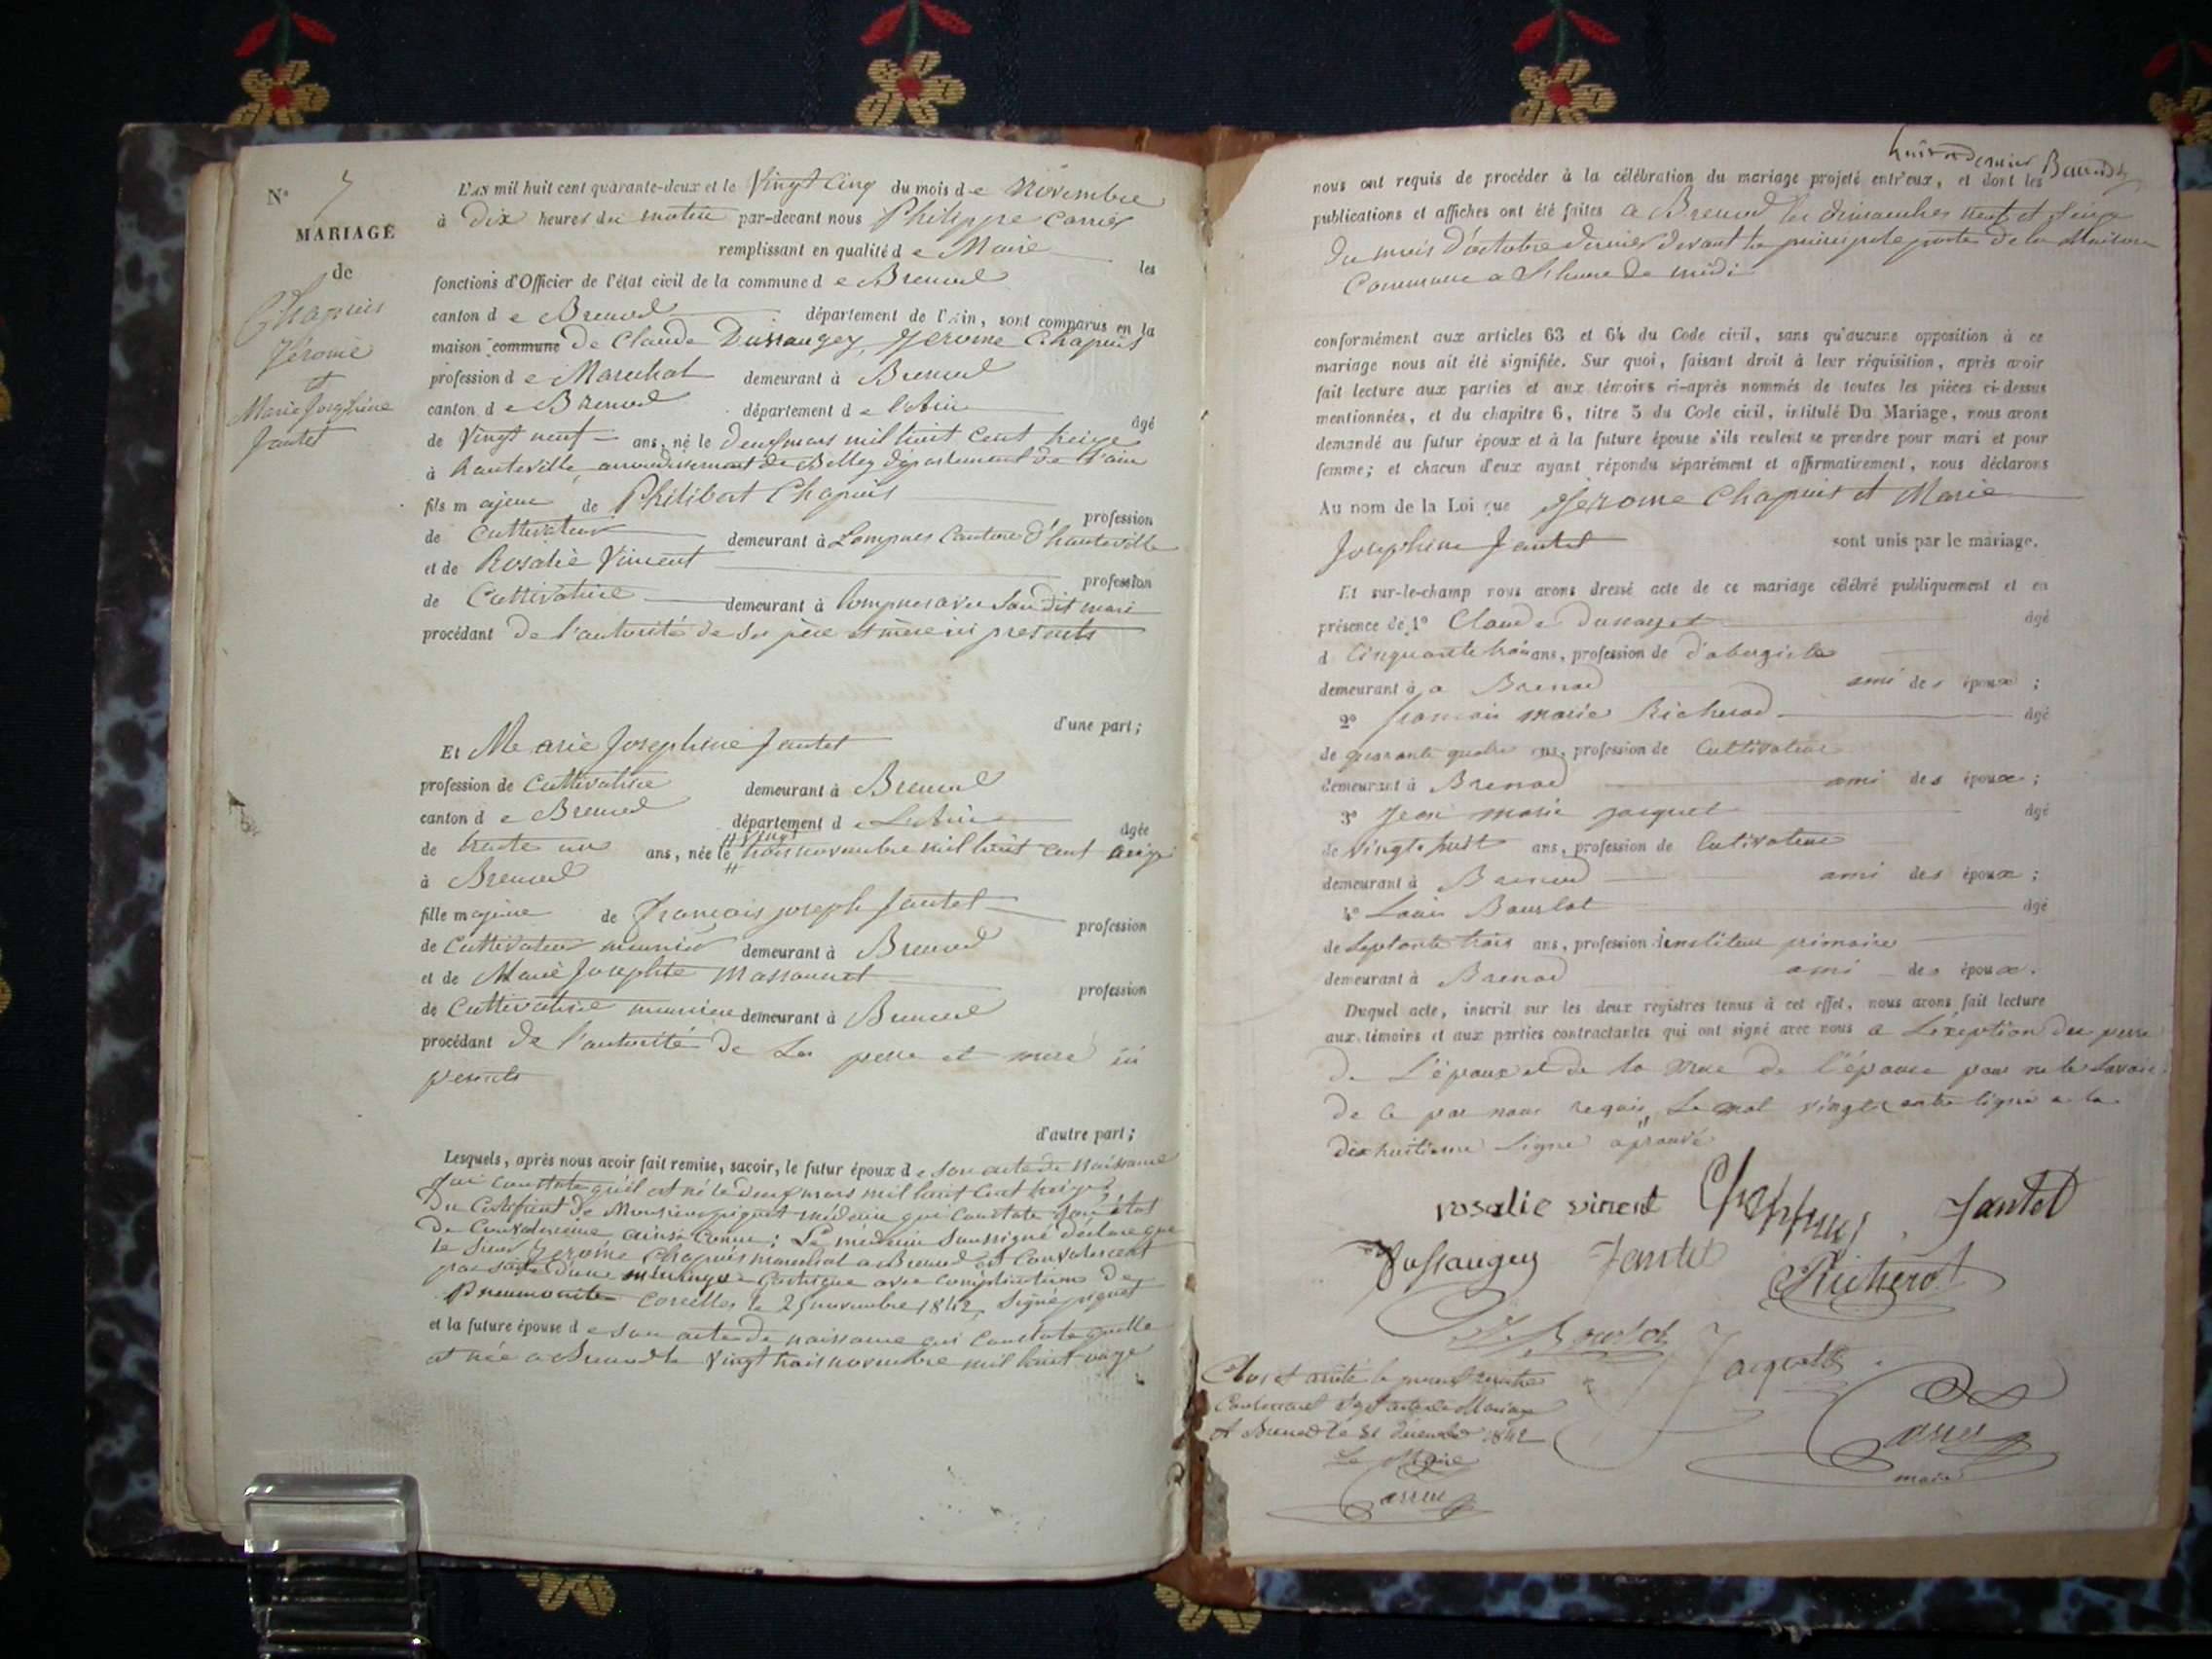 N° 7
MARIAGE
de
Chapuis
Jérome
et
Marie Josephine
Jantet
L'AN mil huit cent quarante-deux et le Vingt Cinq du mois de Novembre
à Dix heures du matin par-devant nous Philippe Carrier
remplissant en qualité de Maire les
fonctions d'Officier de l'état civil de la commune de Brenod
canton de Brenod département de l'Ain, sont comparus en la
maison commune De Claude Dussaugey, Jerome Chapuis
profession de Marechal demeurant à Brenod
canton de Brenod département de l'Ain âgé
de Vingt neuf ans, né le Deux mars mil huit cent treize
à hauteville, arrondissement de Belley département de l'ain
fils majeur de Philibert Chapuis profession
de Cultivateur demeurant à Lompnes Canton d'hauteville
et de Rosalie Vincent profession
de Cultivatrice demeurant à lompnes avec Son dit mari
procédant de l'autorité de Ses père et mère ici presents
d'une part;
Et Marie Josephine Jantet
profession de Cultivatrice demeurant à Brenod
canton de Brenod département de L'Ain âgée
de trente un ans, née le vingt trois novembre mil huit cent onze
à Brenod
fille majeure de François joseph Jantet profession
de Cultivateur meunier demeurant à Brenod
et de Marie Josephte Massonnet profession
de Cultivatrice meuniere demeurant à Brenod
procédant de l'autorité de Ses pere et mere ici
presents
d'autre part;
Lesquels, après nous avoir fait remise, savoir, le futur époux de son acte de Naissance
qui constate qu'il est né le deux mars mil huit cent treize
Du Certificat de Monsieur piquet médecin qui Constate Son état
de Convalescence ainsi Connu: Le médecin Soussigné déclare que
le Sieur Jerome Chapuis marechal a Brenod est Convalescent
par suite d'une gastrique avec complication de
Pneumonite Corcelles le 25 novembre 1842, Signé piquet
et la future épouse de son acte de naissance qui Constate quelle
est née a Brenod le Vingt trois novembre mil huit onze
nous ont requis de procéder à la célébration du mariage projeté entr'eux, et dont les
publications et affiches ont été faites a Brenod les dimanches neuf et Seize
du mois d'octobre dernier devant la principale porte de la Maison
Commune a l'heure de midi
conformément aux articles 63 et 64 du Code civil, sans qu'aucune opposition à ce
mariage nous ait été signifiée. Sur quoi, faisant droit à leur réquisition, après avoir
fait lecture aux parties et aux témoins ci-après nommés de toutes les pièces ci-dessus
mentionnées, et du chapitre 6, titre 5 du Code civil, intitulé Du Mariage, nous avons
demandé au futur époux et à la future épouse s'ils veulent se prendre pour mari et pour
femme; et chacun d'eux ayant répondu séparément et affirmativement, nous déclarons
Au nom de la Loi que Jerome Chapuis et Marie
Josephine Jantet sont unis par le mariage.
Et sur-le-champ nous avons dressé acte de ce mariage célébré publiquement et en
présence de 1° Claude Dussauget âgé
d Cinquante trois ans, profession de d'abergiste
demeurant à a Brenod ami des époux;
2° françois marie Richerod âgé
de quarante quatre ans, profession de Cultivateur
demeurant à Brenod ami des époux;
3° Jean marie jacquet âgé
de vingt huit ans, profession de Cultivateur
demeurant à Brenod ami des époux;
4° Louis Bourlot âgé
de Septante trois ans, profession d'instituteur primaire
demeurant à Brenod ami des époux.
Duquel acte, inscrit sur les deux registres tenus à cet effet, nous avons fait lecture
aux témoins et aux parties contractantes qui ont signé avec nous a L'exeption du pere
de L'époux et de la mere de l'épouse pour ne le Savoir
de ce par nous requis, Le mot vingt entre ligne a la
dixhuitieme Ligne aprouvé
rosalie vincent Chappuis Jantet
Dussaugey Jantet Richerot
Bourlot Jacquet
Carrier
maire
Clos et arrêté le présent registre
Contenant Sept actes de Mariage
A Brenod le 31 décembre 1842
Le Maire
Carrier